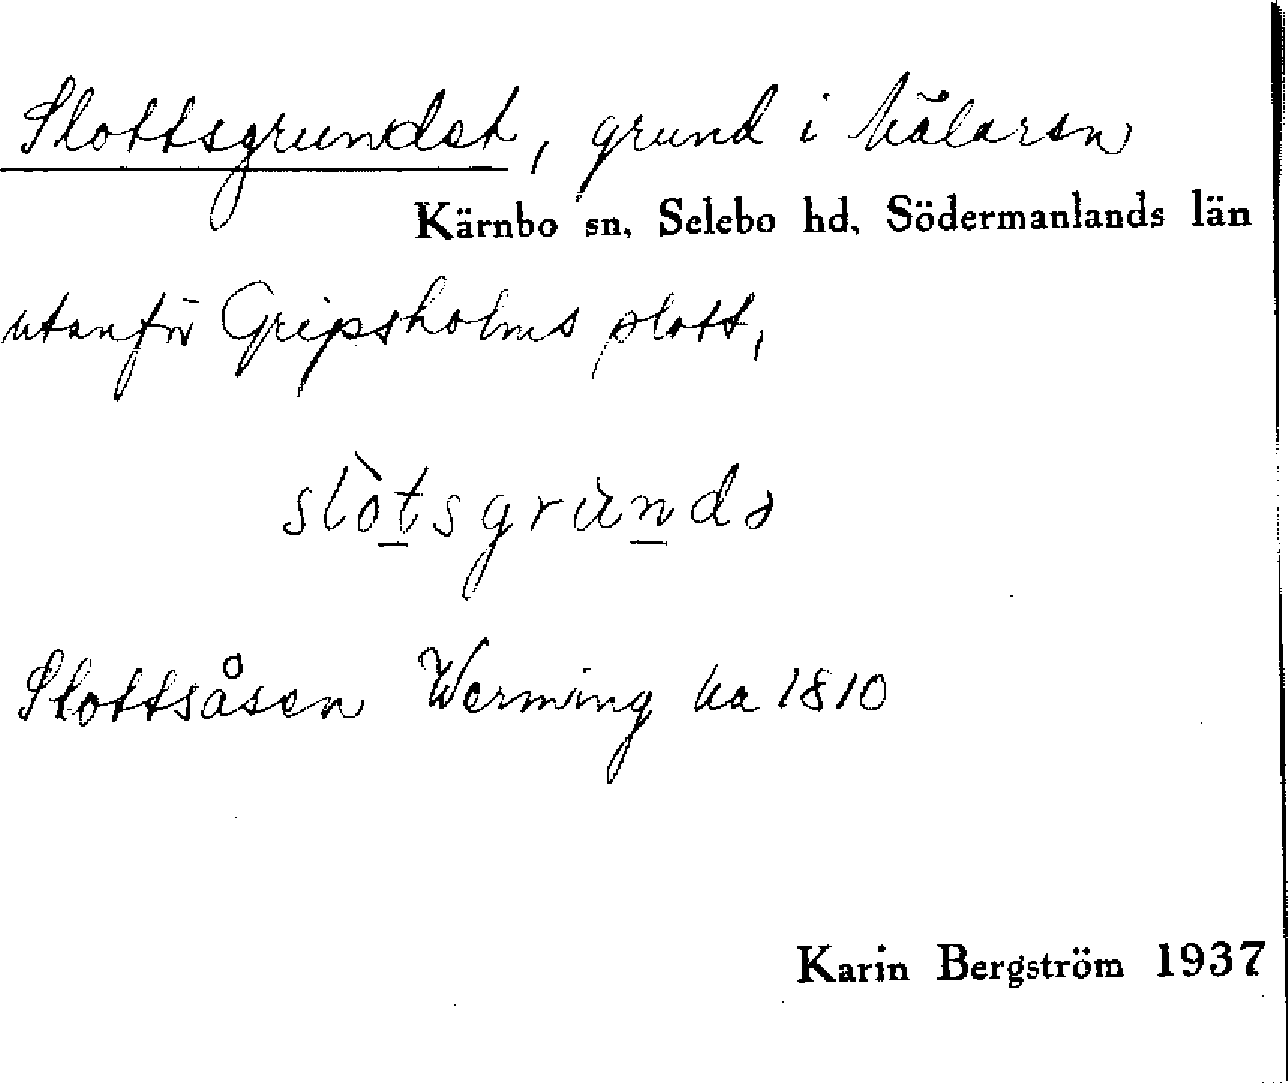 Slottsgrundet, grund i Mälaren
Kärnbo sn, Selebo hd, Södermanlands län
utanför Gripsholms slott,
slòtsgrùndə
Slottsåsen Werming ka 1810
Karin Bergström 1937